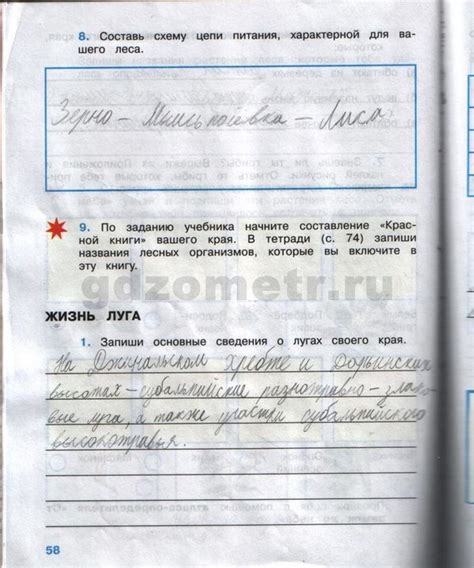 8. Составь схему цепи питания, характерной для ва-
шего леса.
Зерно – Мышь полёвка – Лиса
9. По заданию учебника начните составление «Крас-
ной книги» вашего края. В тетради (с. 74) запиши
названия лесных организмов, которые вы включите в
эту книгу.
gdzometr.ru
ЖИЗНЬ ЛУГА
1. Запиши основные сведения о лугах своего края.
На Джинальском хребте и Боргустанских
высотах – субальпийские разнотравно – злако
вые луга, а также участки субальпийского
высокотравья.
58